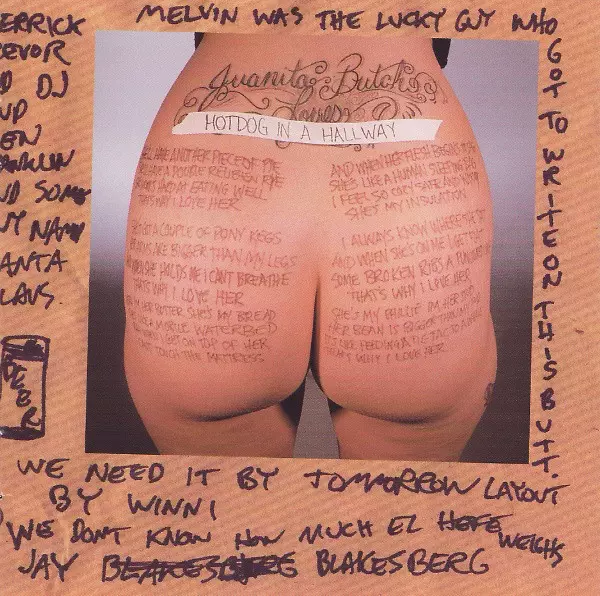 MELVIN WAS THE LUCKY GUY WHO
GOT TO WRITE ON THIS BUTT.
ERRICK
EVOR
D DJ
UP
EN
ANKLIN
ND SOME
NY NAM
ANTA
LAUS.
BEER
Juanita Butch
Loves
HOTDOG IN A HALLWAY
HAVE ANOTHER PIECE OF PIE
HAVE A DOUBLE REUBEN RYE
EATING WELL
THAT'S WHY I LOVE HER
A COUPLE OF PONY KEGS
ARE BIGGER THAN MY LEGS
WHEN SHE HOLDS ME I CAN'T BREATHE
THAT'S WHY I LOVE HER
HER BUTTER SHE'S MY BREAD
A MOBILE WATERBED
ON TOP OF HER
TOUCH THE MATTRESS
AND WHEN HER FLESH BEGINS
SHE'S LIKE A HUMAN SLEEPING BAG
I FEEL SO COZY SAFE AND WARM
SHE'S MY INSULATION
I ALWAYS KNOW WHERE SHE'S AT
AND WHEN SHE'S ON ME I GET FLAT
SOME BROKEN RIBS A PUNCTURED
THAT'S WHY I LOVE HER
SHE'S MY I'M HER
HER BEAN IS BIGGER THAN MY
LIKE FEEDING A TIC TAC TO A WHALE
THAT'S WHY I LOVE HER
WE NEED IT BY TOMMORROW LAYOUT
BY WINNI
WE DONT KNOW HOW MUCH EL HEFE WEIGHS
JAY BLAKESBERG BLAKESBERG